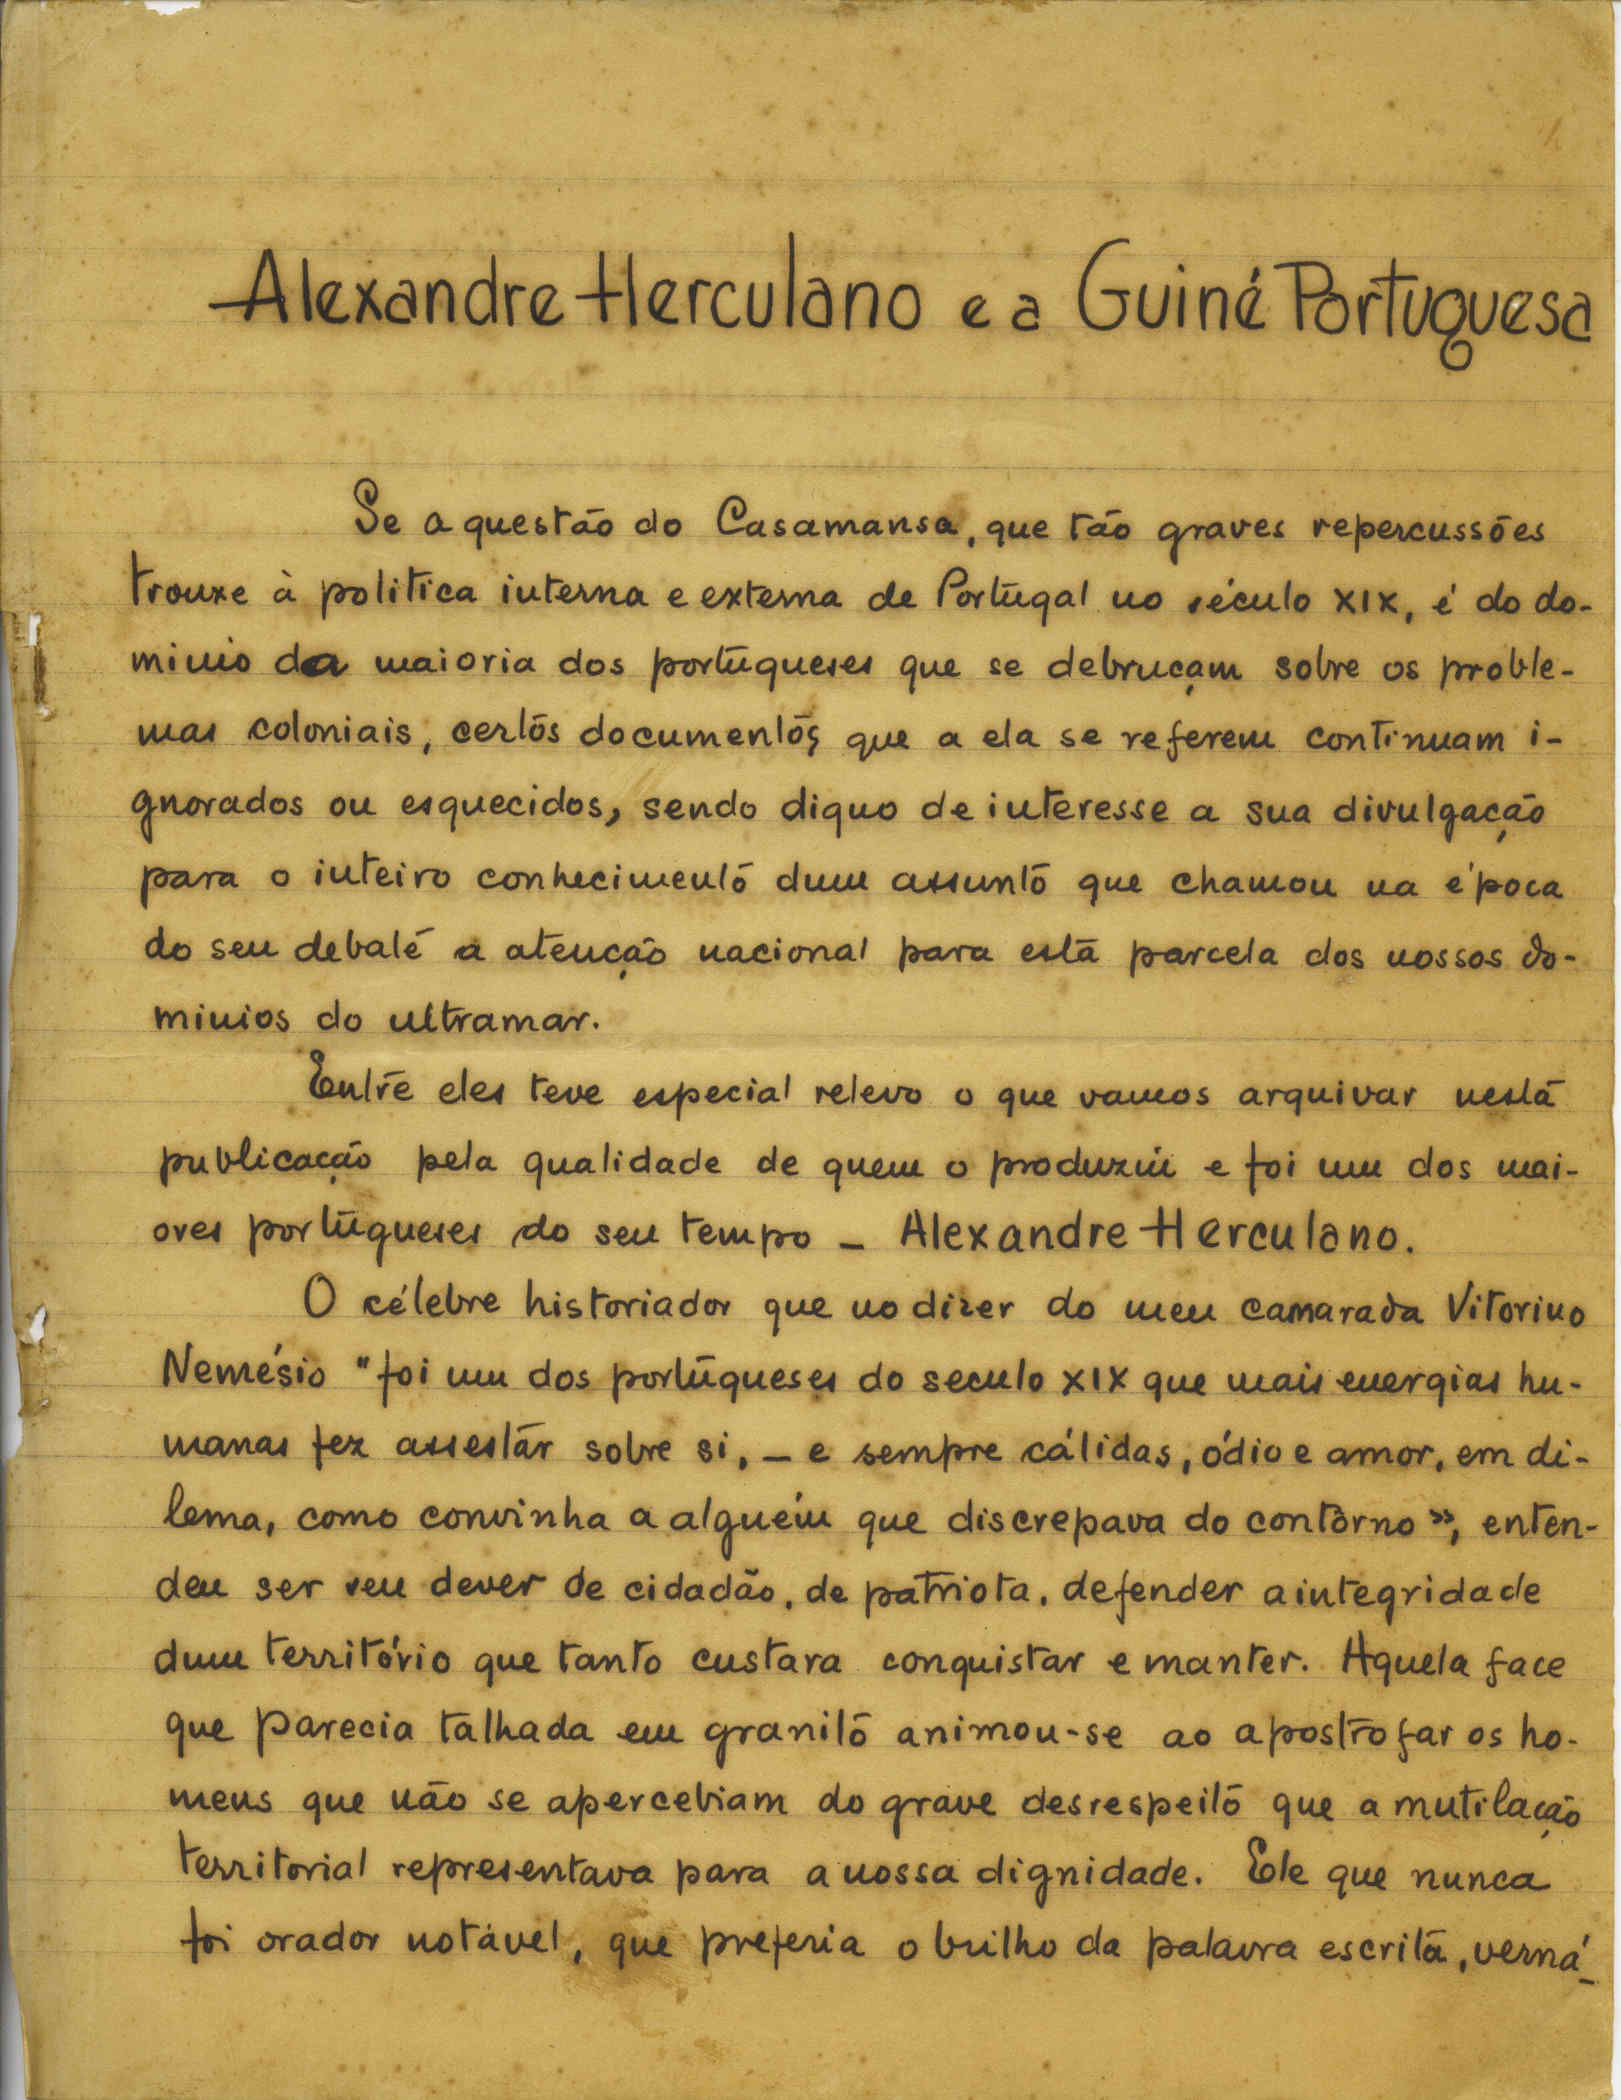 Alexandre Herculano e a Guiné Portuguesa
Se a questão do Casamansa, que tão graves repercussões
trouxe à politica interna e externa de Portugal no século XIX, é do do-
minio da maioria dos portugueses que se debruçam sobre os proble-
mas coloniais, certos documentos que a ela se referem continuam i-
gnorados ou esquecidos, sendo digno de interesse a sua divulgação
para o inteiro conhecimento dum assunto que chamou na época
do seu debate a atenção nacional para esta parcela dos nossos do-
minios do ultramar.
Entre eles teve especial relevo o que vamos arquivar nesta
publicação pela qualidade de quem o produziu e foi um dos mai-
ores portugueses do seu tempo - Alexandre Herculano.
O célebre historiador que no dizer do meu camarada Vitorino
Nemésio "foi um dos portugueses do seculo XIX que mais energias hu-
manas fez assestar sobre si, - e sempre cálidas, ódio e amor, em di-
lema, como convinha a alguém que discrepava do contôrno», enten-
deu ser seu dever de cidadão, de patriota, defender a integridade
dum território que tanto custara conquistar e manter. Aquela face
que parecia talhada em granito animou-se ao apostrofar os ho-
mens que não se apercebiam do grave desrespeito que a mutilação
territorial representava para a nossa dignidade. Ele que nunca
foi orador notável, que preferia o brilho da palavra escrita, verná-